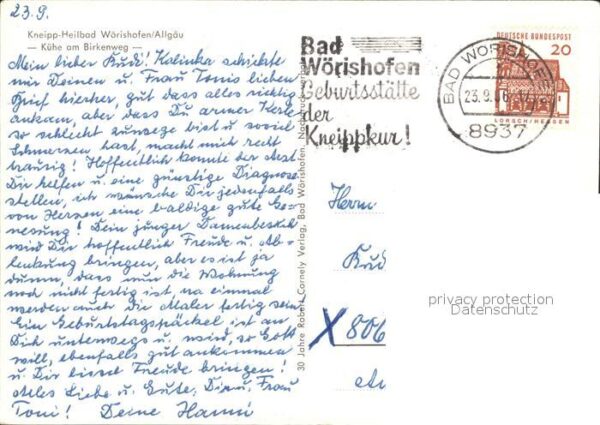 23.9.
Kneipp-Heilbad Wörishofen/Allgäu
— Kühe am Birkenweg —
Mein lieber Rudi! Kalinka schickte
mir Deinen u. Frau Tonis lieben
Brief hierher, gut dass alles richtig
ankam, aber dass Du armer Kerl
so schlecht zuwege bist u. soviel
Schmerzen hast, macht mich recht
traurig! Hoffentlich konnte der Arzt
Dir helfen u. eine günstige Diagnose
stellen, ich wünsche Dir jedenfalls
von Herzen eine baldige gute Ge-
nesung! Dein junger Damenbesuch
wird Dir hoffentlich Freude u. Ab-
lenkung bringen, aber es ist ja
dumm, dass nun die Wohnung
noch nicht fertig ist, na einmal
werden auch die Maler fertig sein
Ein Geburtstagspäckel ist an
Dich unterwegs u. wird, so Gott
will, ebenfalls gut ankommen
u. Dir viel Freude bringen!
Alles Liebe u. Gute, Dir u. Frau
Toni! Deine Hanni
30 Jahre Robert Cornely Verlag, Bad Wörishofen.
Bad
Wörishofen
Geburtsstätte
der
Kneippkur!
BAD WÖRISHOFEN
23.9.66
8937
DEUTSCHE BUNDESPOST
20
LORSCH/HESSEN
Herrn
Rud
X 806
privacy protection
Datenschutz